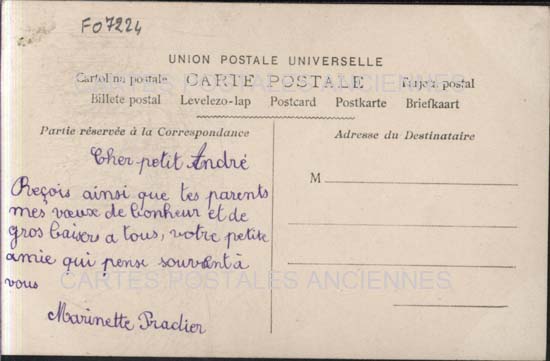 F07224
UNION POSTALE UNIVERSELLE
CARTES POSTALES ANCIENNES
Cartolina postale CARTE POSTALE Tarjeta postal
Billete postal Levelezo-lap Postcard Postkarte Briefkaart
Partie réservée à la Correspondance
Adresse du Destinataire
Cher petit André
Reçois ainsi que tes parents
mes vœux de bonheur et de
gros baisers a tous, votre petite
amie qui pense souvent à
vous
Marinette Pradier
M
CARTES POSTALES ANCIENNES